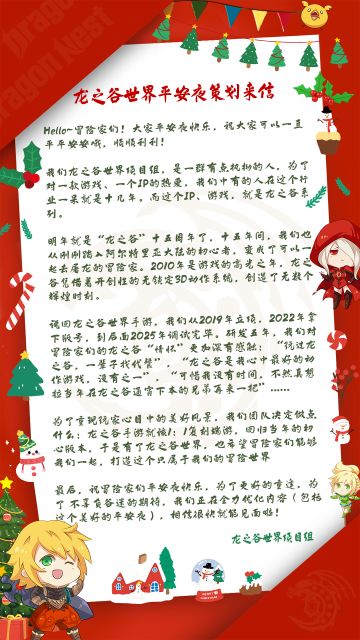 Dragon Nest
龙之谷世界平安夜策划来信
Hello~冒险家们!大家平安夜快乐,祝大家可以一直
平平安安哦,顺顺利利!
我们龙之谷世界项目组,是一群有点执拗的人,为了
对一款游戏、一个IP的热爱,我们中有的人在这个行
业一呆就是十几年,而这个IP、游戏,就是龙之谷系
列。
明年就是“龙之谷”十五周年了,十五年间,我们也
从刚刚踏入阿尔特里亚大陆的初心者,变成了可以一
起去屠龙的冒险家。2010年是游戏的高光之年,龙之
谷凭借着开创性的无锁定3D动作系统,创造了无数个
辉煌时刻。
说回龙之谷世界手游,我们从2019年立项,2022年拿
下版号,到后面2025年调试完毕。研发五年,我们对
冒险家们的龙之谷“情怀”更加深有感触:“玩过龙
之谷,一辈子找代餐”、“龙之谷是我心中最好的动
作游戏,没有之一”、“可惜我没有时间,不然真想
拉当年在龙之谷通宵下本的兄弟再来一把”……
为了重现玩家心目中的美好风景,我们团队决定做点
什么:龙之谷手游就该1:1复刻端游,回归当年的初
心版本,于是有了龙之谷世界,也希望冒险家们能够
我们一起,打造这个只属于我们的冒险世界
最后,祝冒险家们平安夜快乐,为了更好的重逢,为
了不辜负各道的期待,我们正在全力优化内容(包括
这个美好的平安夜),相信很快就能见面啦!
龙之谷世界项目组